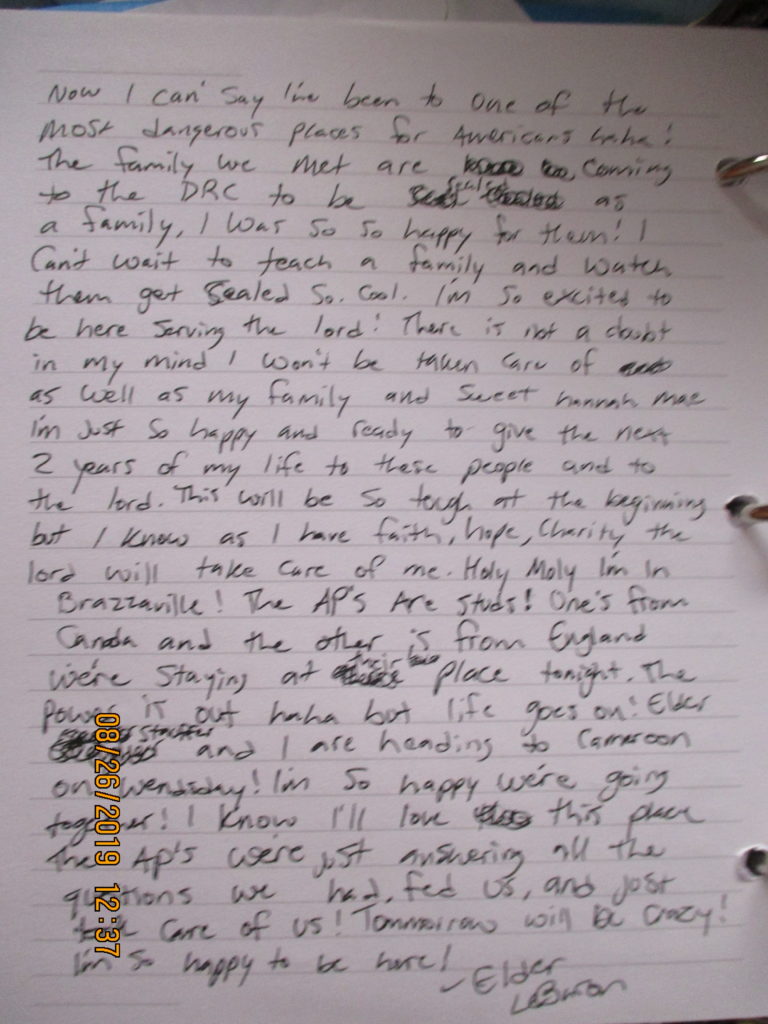 Now I can Say I've been to one of the
most dangerous places for Americans haha!
The family we met are coming
to the DRC to be sealed as
a family, I was so so happy for them! I
Can't wait to teach a family and watch
them get Sealed So. Cool. I'm so excited to
be here serving the lord! There is not a doubt
in my mind I won't be taken care of
as well as my family and sweet hannah mae
I'm Just So happy and ready to give the next
2 years of my life to these people and to
the lord. This will be so tough at the beginning
but I know as I have faith, hope, Charity the
lord will take care of me. Holy Moly I'm In
Brazzaville! The AP's Are studs! One's from
Canada and the other is from England
We're Staying at their place tonight. The
power is out haha but life goes on! Elder
Stauffer and I are heading to Cameroon
on Wendsday! I'm So happy we're going
together! I know I'll love this place
The AP's were just answering all the
questions we had, fed us, and just
took care of us! Tommorrow will be crazy!
I'm So happy to be here!
- Elder
LeBaron
08/26/2019 12:37